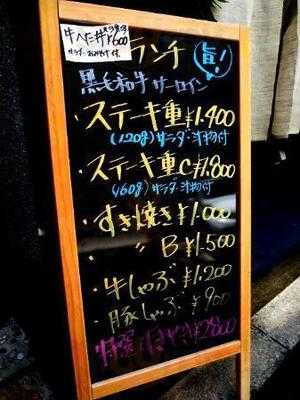 牛へた丼 ¥600
ランチ 旨!
黒毛和牛サーロイン
・ステーキ重¥1.400
(120g)サラダ・汁物付
・ステーキ重C¥1.800
(160g)サラダ・汁物付
・すき焼き¥1.000
・〃 B¥1.500
・牛しゃぶ¥1.200
・豚しゃぶ¥900